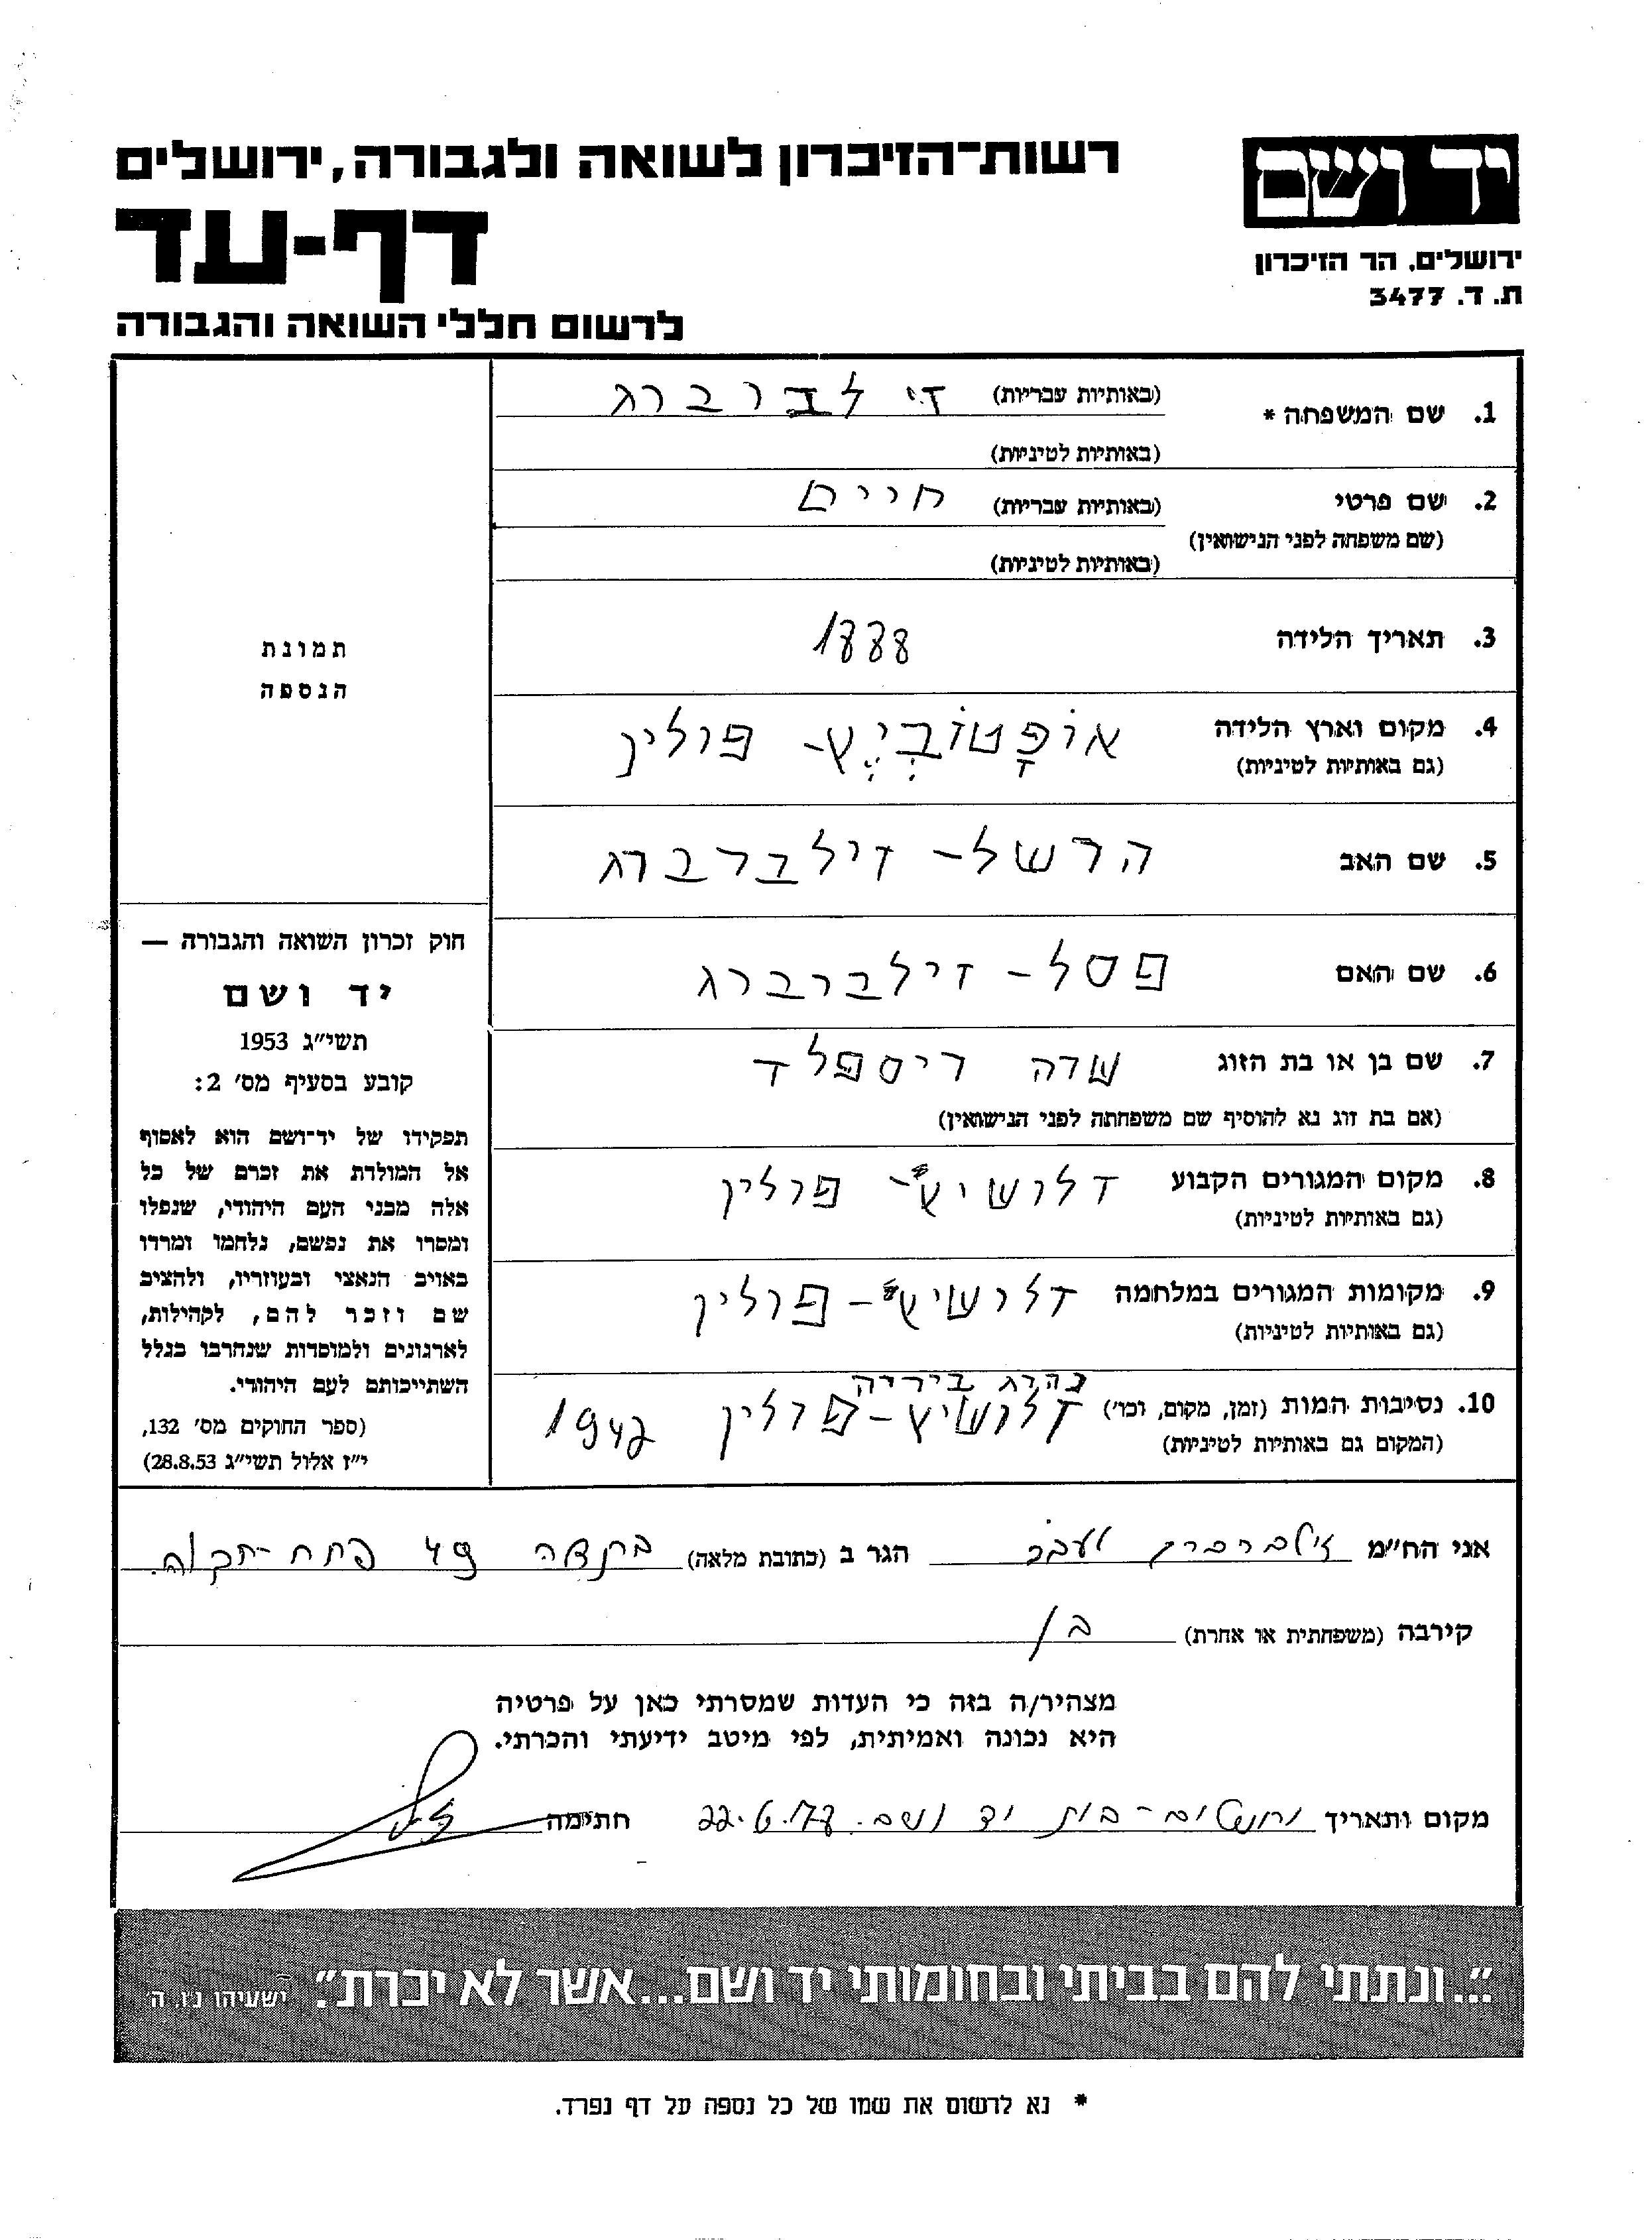 יד ושם
רשות־הזיכרון לשואה ולגבורה, ירושלים
דף-עד
ירושלים, הר הזיכרון
ת. ד. 3477
לרשום חללי השואה והגבורה
1. שם המשפחה * (באותיות עבריות) זילברברג
(באותיות לטיניות)
2. שם פרטי (באותיות עבריות) חיים
(שם משפחה לפני הנישואין)
(באותיות לטיניות)
3. תאריך הלידה 1888
4. מקום וארץ הלידה אוֹפָּטוֹבְיֶץ - פולין
(גם באותיות לטיניות)
5. שם האב הרשל - זילברברג
6. שם האם פסל - זילברברג
7. שם בן או בת הזוג שרה רייספלד
(אם בת זוג נא להוסיף שם משפחתה לפני הנישואין)
8. מקום המגורים הקבוע דלושיץ - פולין
(גם באותיות לטיניות)
9. מקומות המגורים במלחמה דלושיץ - פולין
(גם באותיות לטיניות)
נהרג ביריה
10. נסיבות המות (זמן, מקום, וכו') דלושיץ - פולין 1942
(המקום גם באותיות לטיניות)
תמונת
הנספה
חוק זכרון השואה והגבורה —
יד ושם
תשי״ג 1953
קובע בסעיף מס' 2:
תפקידו של יד־ושם הוא לאסוף
אל המולדת את זכרם של כל
אלה מבני העם היהודי, שנפלו
ומסרו את נפשם, נלחמו ומרדו
באויב הנאצי ובעוזריו, ולהציב
שם וזכר להם, לקהילות,
לארגונים ולמוסדות שנחרבו בגלל
השתייכותם לעם היהודי.
(ספר החוקים מס' 132,
י״ז אלול תשי״ג 28.8.53)
אני הח״מ זילברברג יעקב הגר ב (כתובת מלאה) 49 פתח-תקוה.
קירבה (משפחתית או אחרת) בן
מצהיר/ה בזה כי העדות שמסרתי כאן על פרטיה
היא נכונה ואמיתית, לפי מיטב ידיעתי והכרתי.
מקום ותאריך ירושלים - בית יד ושם. 22.6.77 חתימה
״...ונתתי להם בביתי ובחומותי יד ושם...אשר לא יכרת״. ישעיהו נ״ו, ה׳
* נא לרשום את שמו של כל נספה על דף נפרד.